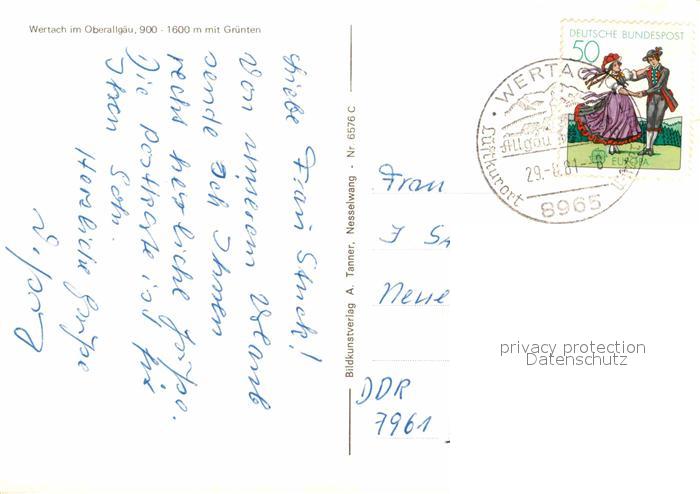 Wertach im Oberallgäu, 900 - 1600 m mit Grünten
Liebe Frau
Von unserem Urlaub
sende ich Ihnen
recht herzliche Grüße.
Die Postkarte ist für
Ihren
Herzliche Grüße
Bildkunstverlag A. Tanner, Nesselwang · Nr. 6576 C
DEUTSCHE BUNDESPOST
50
EUROPA
WERTAC
Allgäu
29.-8.81
Luftkurort
8965
Frau
J
Neue
DDR
7961
privacy protection
Datenschutz